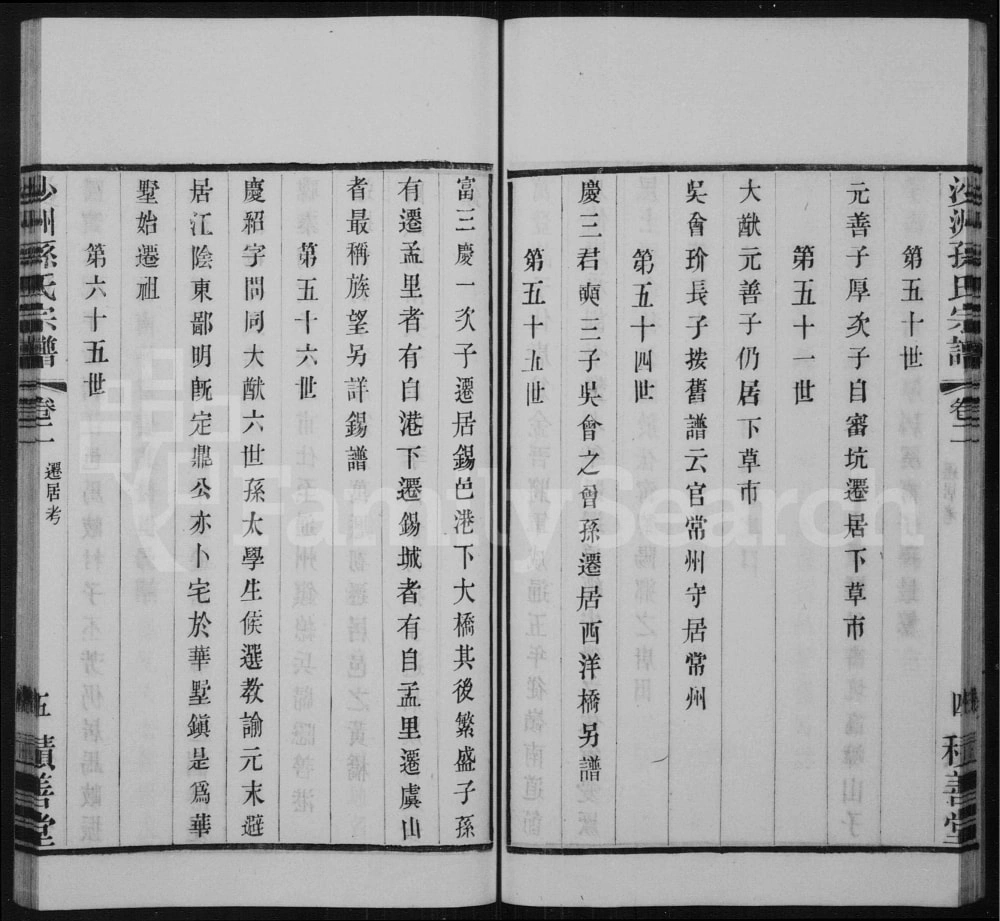 沙洲孫氏宗譜
卷二
四
積善堂
第五十世
元善子厚次子自審坑遷居下草市
第五十一世
大猷元善子仍居下草市
吳會玠長子按舊譜云官常州守居常州
第五十四世
慶三君奭三子吳會之曾孫遷居西洋橋另譜
第五十五世
富三慶一次子遷居錫邑港下大橋其後繁盛子孫
有遷孟里者有自港下遷錫城者有自孟里遷虞山
者最稱族望另詳錫譜
第五十六世
慶紹字問同大猷六世孫太學生候選教諭元末避
居江陰東鄙明旣定鼎公亦卜宅於華墅鎭是爲華
墅始遷祖
第六十五世
沙洲孫氏宗譜
卷二
遷居考
五
積善堂
FamilySearch